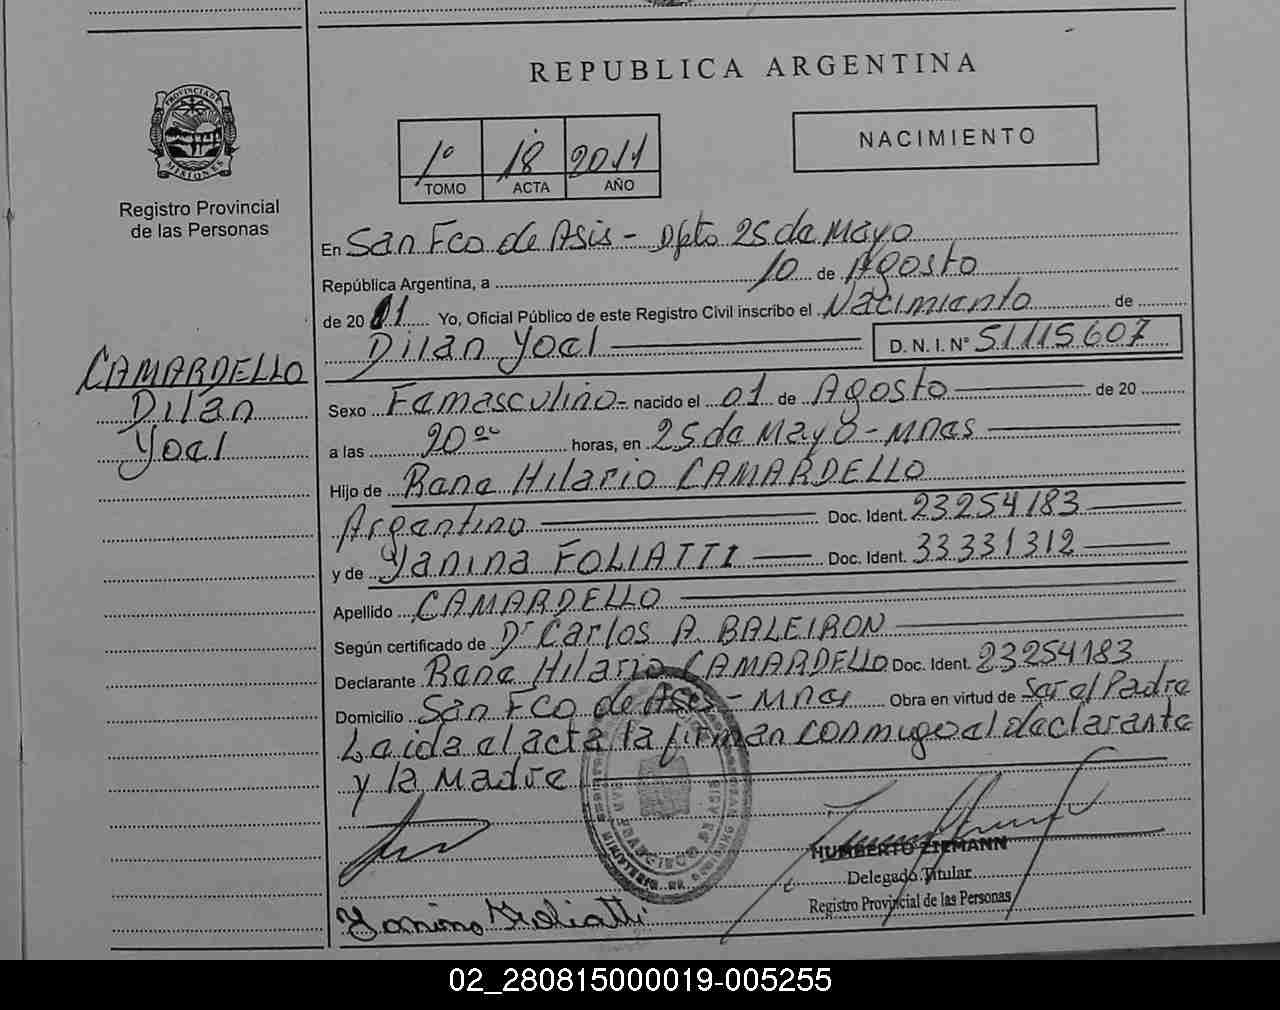 REPUBLICA ARGENTINA
PROVINCIA DE
MISIONES
Registro Provincial
de las Personas
1º 18 2011
TOMO ACTA AÑO
NACIMIENTO
En San Fco de Asis - Dpto 25 de Mayo
República Argentina, a 10 de Agosto
de 2011 Yo, Oficial Público de este Registro Civil inscribo el Nacimiento de
Dilan Yoel D. N. I. Nº 51115607
CAMARDELLO
Dilan
Yoel
Sexo Femasculino - nacido el 01 de Agosto de 20
a las 20 oo horas, en 25 de Mayo - Mnes
Hijo de Rene Hilario CAMARDELLO
Argentino Doc. Ident. 23254183
y de Yanina FOLIATTI Doc. Ident. 33331312
Apellido CAMARDELLO
Según certificado de Dr Carlos A. BALEIRON
Declarante Rene Hilario CAMARDELLO Doc. Ident. 23254183
Domicilio San Fco de Asis - Mnes Obra en virtud de Ser el Padre
Leida el acta la firman conmigo el declarante
y la Madre
SAN FRANCISCO DE ASIS
MINISTERIO DE
HUMBERTO ZIEMANN
Delegado Titular
Registro Provincial de las Personas
Yanina Foliatti
02_280815000019-005255